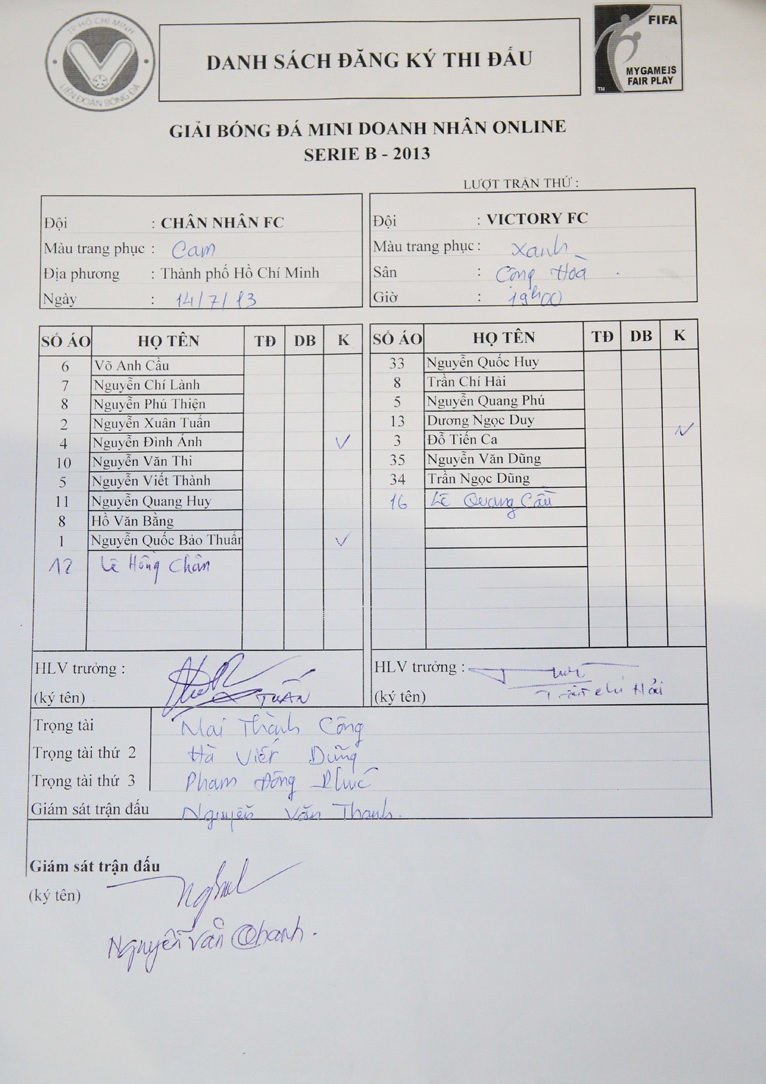 TP HỒ CHÍ MINH
LIÊN ĐOÀN BÓNG ĐÁ
DANH SÁCH ĐĂNG KÝ THI ĐẤU
FIFA
MY GAME IS
FAIR PLAY
TM
GIẢI BÓNG ĐÁ MINI DOANH NHÂN ONLINE
SERIE B - 2013
LƯỢT TRẬN THỨ :
Đội : CHÂN NHÂN FC
Màu trang phục : Cam
Địa phương : Thành phố Hồ Chí Minh
Ngày : 14/7/13
Đội : VICTORY FC
Màu trang phục : Xanh
Sân : Cộng Hoà
Giờ : 19h00
SỐ ÁO HỌ TÊN TĐ DB K
6 Võ Anh Cầu
7 Nguyễn Chí Lành
8 Nguyễn Phú Thiện
2 Nguyễn Xuân Tuấn
4 Nguyễn Đình Ánh V
10 Nguyễn Văn Thi
5 Nguyễn Viết Thành
11 Nguyễn Quang Huy
8 Hồ Văn Bằng
1 Nguyễn Quốc Bảo Thuấn V
12 Lê Hồng Chân
SỐ ÁO HỌ TÊN TĐ DB K
33 Nguyễn Quốc Huy
8 Trần Chí Hải
5 Nguyễn Quang Phú
13 Dương Ngọc Duy
3 Đỗ Tiến Ca
35 Nguyễn Văn Dũng
34 Trần Ngọc Dũng
16 Lê Quang Cầu
HLV trưởng :
(ký tên) TUẤN
HLV trưởng :
(ký tên) Trần Chí Hải
Trọng tài Mai Thành Công
Trọng tài thứ 2 Hà Viết Dũng
Trọng tài thứ 3 Phạm Đông
Giám sát trận đấu Nguyễn Văn Thanh.
Giám sát trận đấu
(ký tên)
Nguyễn Văn Thanh.